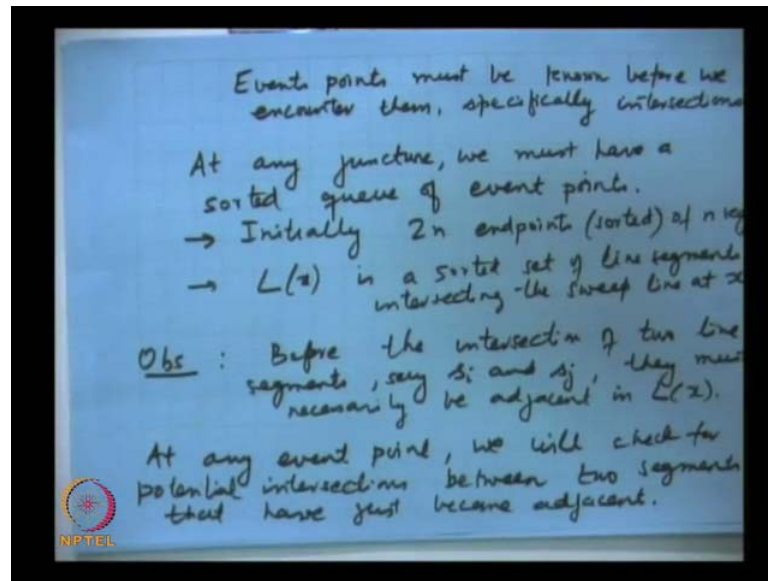 Event points must be known before we
encounter them, specifically intersections
At any juncture, we must have a
sorted queue of event points.
→ Initially 2n endpoints (sorted) of n seg
→ L(x) is a sorted set of line segments
intersecting the sweep line at x
Obs : Before the intersection of two line
segments, say si and sj, they must
necessarily be adjacent in L(x).
At any event point, we will check for
potential intersections between two segments
that have just become adjacent.
NPTEL